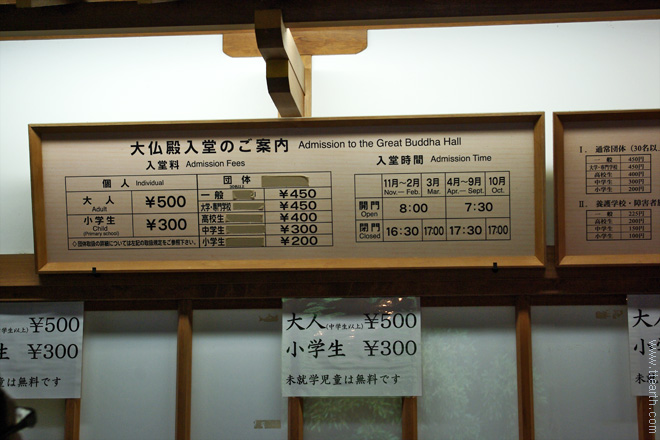 大仏殿入堂のご案内 Admission to the Great Buddha Hall
入堂料 Admission Fees
個人 Individual
大人 Adult ¥500
小学生 Child (Primary school) ¥300
団体
一般 ¥450
大学・専門学校 ¥450
高校生 ¥400
中学生 ¥300
小学生 ¥200
◇団体取扱の詳細については左記の取扱規定をご参照下さい。
入堂時間 Admission Time
11月〜2月 Nov.—Feb. 3月 Mar. 4月〜9月 Apr.—Sept. 10月 Oct.
開門 Open 8:00 7:30
閉門 Closed 16:30 17:00 17:30 17:00
I. 通常団体(30名以
一般 450円
大学・専門学校 450円
高校生 400円
中学生 300円
小学生 200円
II. 養護学校・障害者
一般 225円
高校生 200円
中学生 150円
小学生 100円
(中学生以上) ¥500
生 ¥300
児童は無料です
大人(中学生以上) ¥500
小学生 ¥300
未就学児童は無料です
大人
小学
未就学
www.ttaarth.com